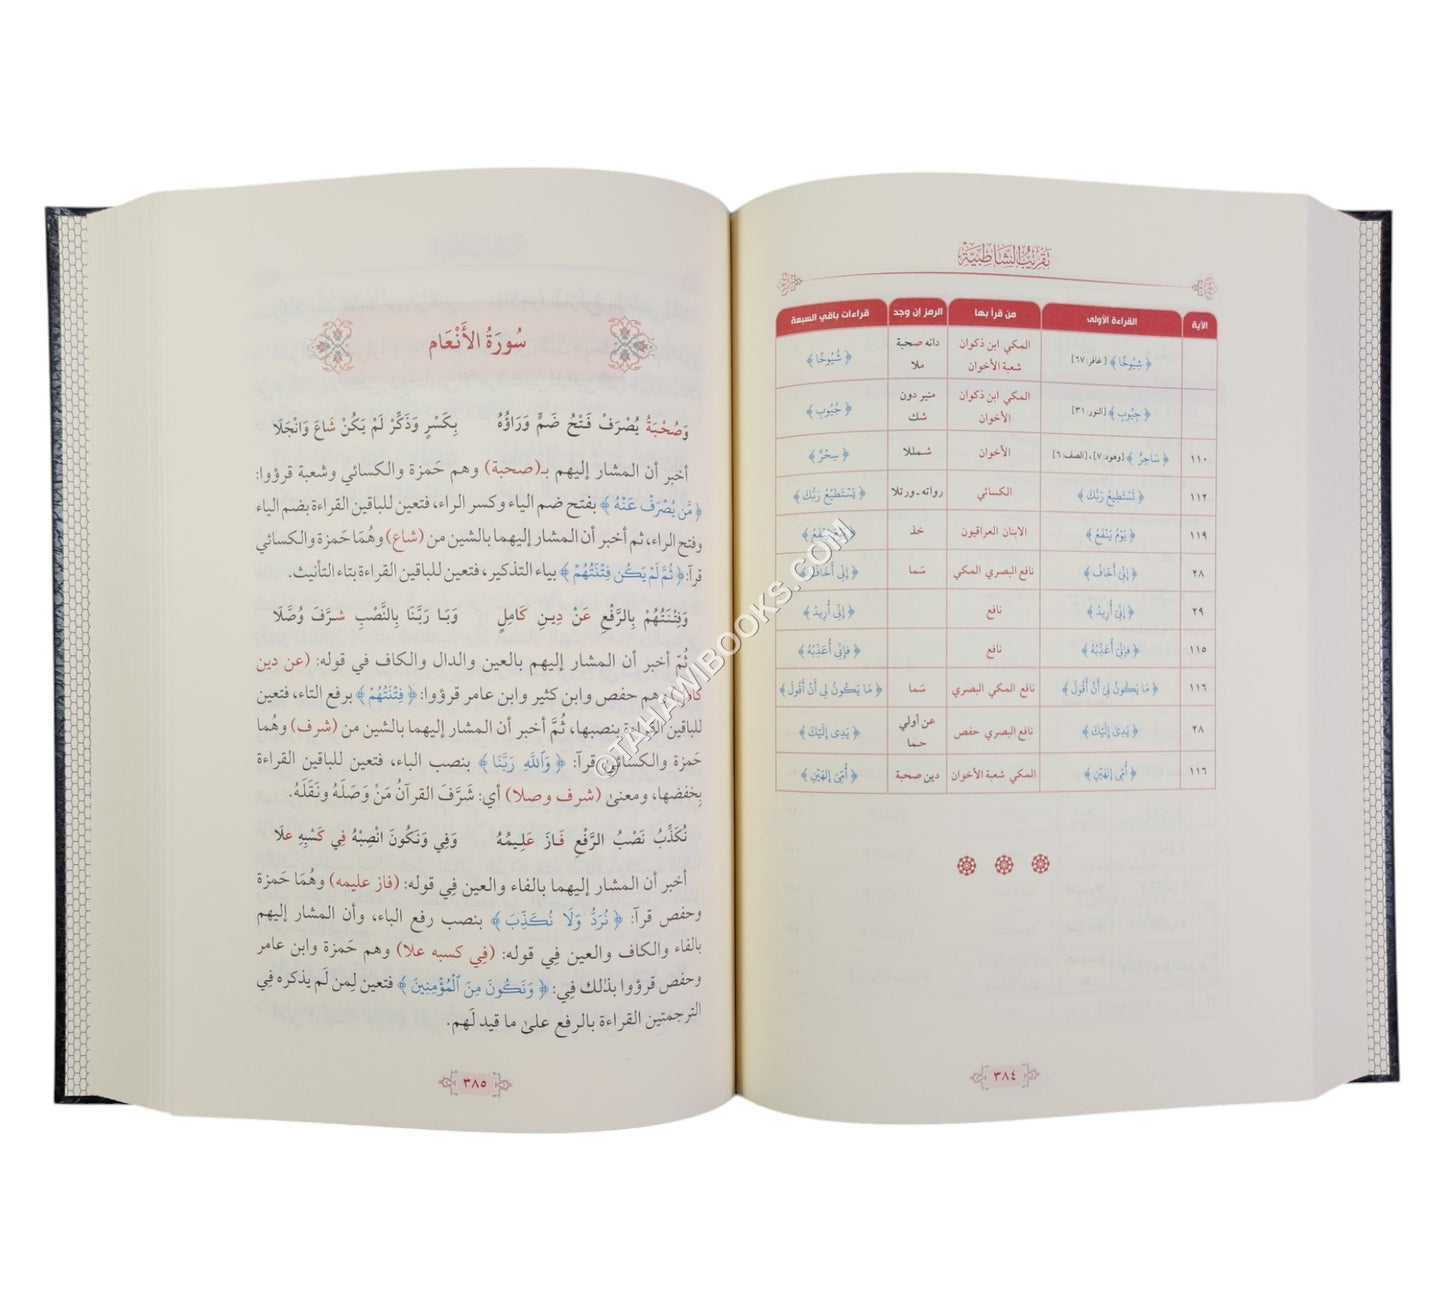 تقريب الشاطبية
الآية القراءة الأولى من قرأ بها الرمز إن وجد قراءات باقي السبعة
﴿ شِيُوخًا ﴾ [غافر: ٦٧] المكي ابن ذكوان شعبة الأخوان دانه صحبة ملا ﴿ شُيُوخًا ﴾
﴿ جِيُوبِ ﴾ [النور: ٣١] المكي ابن ذكوان الأخوان منير دون شك ﴿ جُيُوبِ ﴾
١١٠ ﴿ سَاحِرٌ ﴾ [وهود: ٧]، [الصف: ٦] الأخوان شمللا ﴿ سِحْرٌ ﴾
١١٢ ﴿ تَسْتَطِيعُ رَبَّكَ ﴾ الكسائي رواته ـ ورتلا ﴿ يَسْتَطِيعُ رَبُّكَ ﴾
١١٩ ﴿ يَوْمُ يَنْفَعُ ﴾ الابنان العراقيون خذ ﴿ يَوْمَ يَنْفَعُ ﴾
٢٨ ﴿ إِنِّيَ أَخَافُ ﴾ نافع البصري المكي سَما ﴿ إِنِّي أَخَافُ ﴾
٢٩ ﴿ إِنِّيَ أُرِيدُ ﴾ نافع ﴿ إِنِّي أُرِيدُ ﴾
١١٥ ﴿ فَإِنِّيَ أُعَذِّبُهُ ﴾ نافع ﴿ فَإِنِّي أُعَذِّبُهُ ﴾
١١٦ ﴿ مَا يَكُونُ لِيَ أَنْ أَقُولَ ﴾ نافع المكي البصري سَما ﴿ مَا يَكُونُ لِي أَنْ أَقُولَ ﴾
٢٨ ﴿ يَدِيَ إِلَيْكَ ﴾ نافع البصري حفص عن أولي حما ﴿ يَدِي إِلَيْكَ ﴾
١١٦ ﴿ أُمِّي إِلَهَيْنِ ﴾ المكي شعبة الأخوان دين صحبة ﴿ أُمِّيَ إِلَهَيْنِ ﴾
٣٨٤
سُورَةُ الأَنْعَام
وَصُحْبَةُ يُصْرَفْ فَتْحُ ضَمٍّ وَرَاؤُهُ بِكَسْرٍ وَذَكِّرْ لَمْ يَكُنْ شَاعَ وَانْجَلَا
أخبر أن المشار إليهم بـ(صحبة) وهم حَمزة والكسائي وشعبة قرؤوا:
﴿ مَّن يُصْرَفْ عَنْهُ ﴾ بفتح ضم الياء وكسر الراء، فتعين للباقين القراءة بضم الياء
وفتح الراء، ثم أخبر أن المشار إليهما بالشين من (شاع) وهُمَا حَمزة والكسائي
قرآ: ﴿ ثُمَّ لَمْ يَكُن فِتْنَتُهُمْ ﴾ بياء التذكير، فتعين للباقين القراءة بتاء التأنيث.
وَفِتْنَتُهُمْ بِالرَّفْعِ عَنْ دِينِ كَامِلٍ وَبَا رَبَّنَا بِالنَّصْبِ شَرَّفَ وُصَّلَا
ثُمّ أخبر أن المشار إليهم بالعين والدال والكاف في قوله: (عن دين
كامل) وهم حفص وابن كثير وابن عامر قرؤوا: ﴿ فِتْنَتُهُمْ ﴾ برفع التاء، فتعين
للباقين القراءة بنصبها، ثُمَّ أخبر أن المشار إليهما بالشين من (شرف) وهُما
حَمزة والكسائي قرآ: ﴿ وَٱللَّهِ رَبَّنَا ﴾ بنصب الباء، فتعين للباقين القراءة
بِخفضها، ومعنىٰ (شرف وصلا) أي: شَرَّفَ القرآنُ مَنْ وَصَلَهُ ونَقَلَهُ.
نُكَذِّبُ نَصْبُ الرَّفْعِ فَـازَ عَلِيمُهُ وَفِي وَنَكُونَ انْصِبْهُ فِي كَسْبِهِ عـلَا
أخبر أن المشار إليهما بالفاء والعين فِي قوله: (فاز عليمه) وهُمَا حَمزة
وحفص قرآ: ﴿ نُرَدُّ وَلَا نُكَذِّبَ ﴾ بنصب رفع الباء، وأن المشار إليهم
بالفاء والكاف والعين فِي قوله: (فِي كسبه علا) وهم حَمزة وابن عامر
وحفص قرؤوا بذٰلك فِي: ﴿ وَنَكُونَ مِنَ ٱلْمُؤْمِنِينَ ﴾ فتعين لِمن لَم يذكره فِي
الترجمتين القراءة بالرفع علىٰ ما قيد لَهم.
٣٨٥
©TAHAWIBOOKS.COM